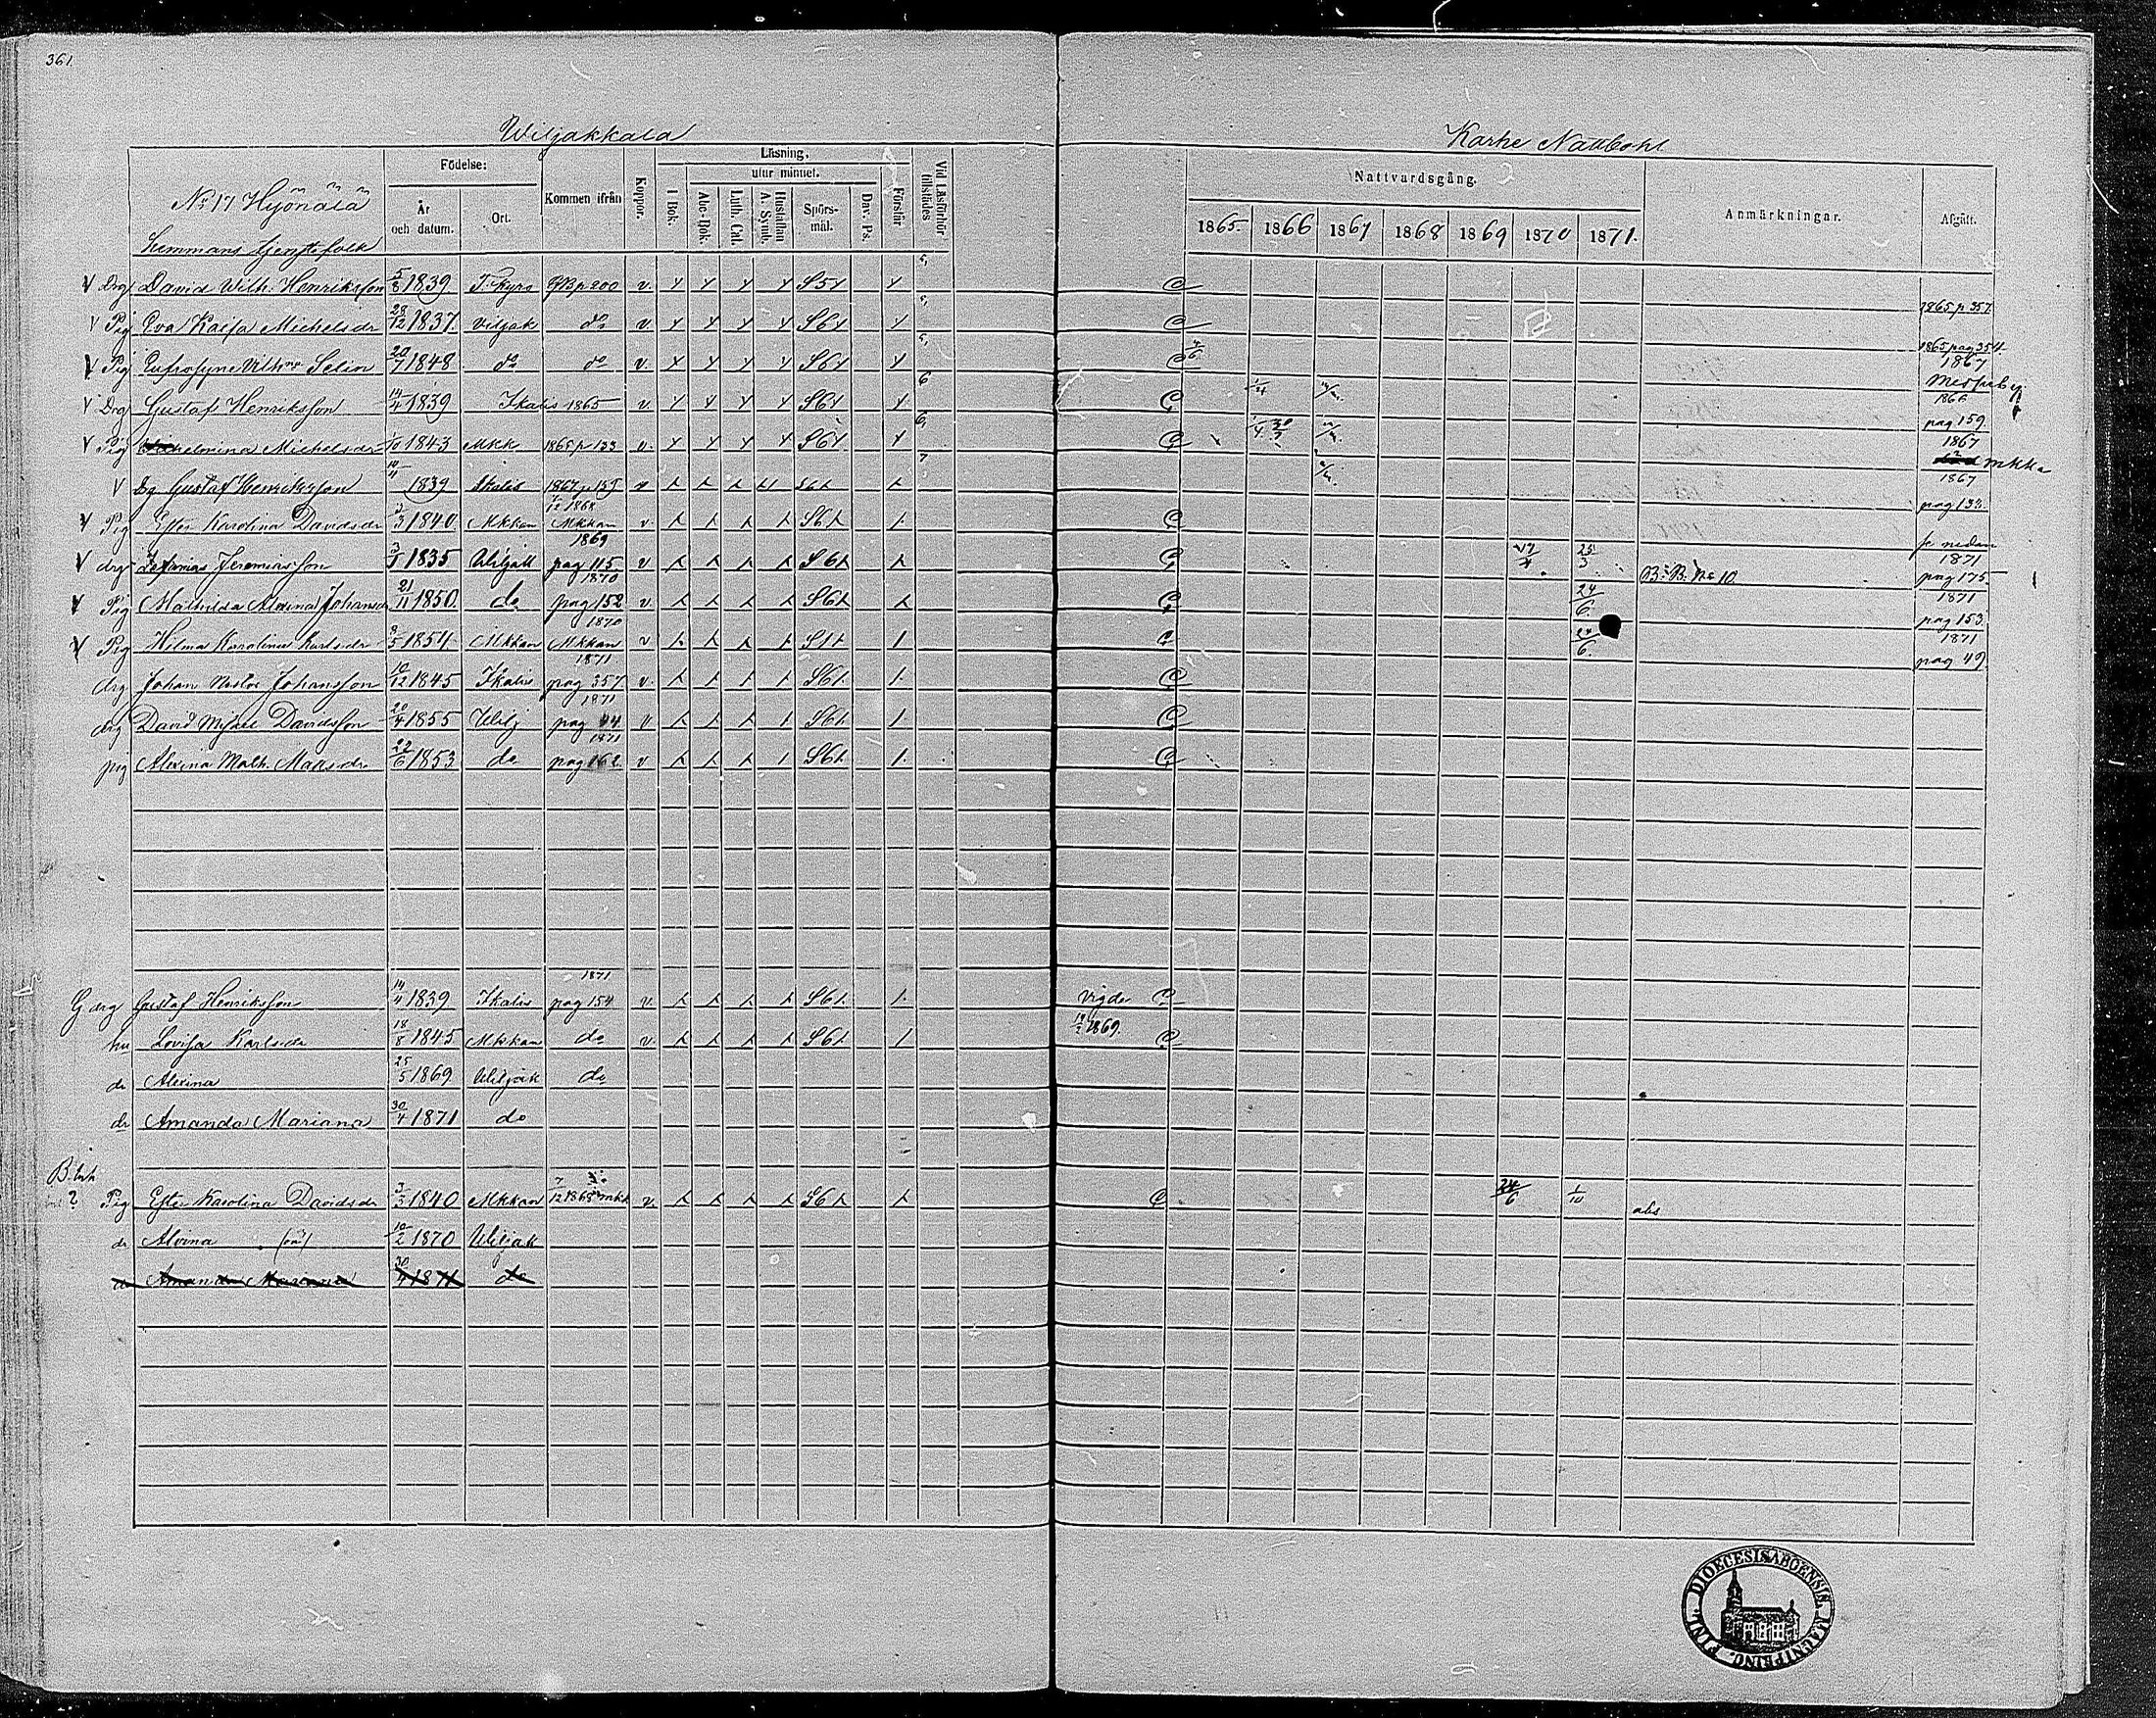 361.
Wiljakkala
Karhe Nattbohl
Födelse:
År och datum.
Ort.
Kommen ifrån
Koppor.
Läsning.
utur minnet.
I Bok.
Abc-Bok.
Luth. Cat.
Hustaflan A. Symb.
Spörs-mål.
Dav. Ps.
Förstår
Vid Läsförhör tillstädes
Nattvardsgång.
1865. 1866 1867 1868 1869 1870 1871.
Anmärkningar.
Afgått.
No 17 Hyönälä
Hemmans tjenstefolk
V Drg David Wilh. Henriksson 5/8 1839 T. Kyro v. S5 1865 p 357
V Pig Eva Kaisa Michelsdr 28/12 1837. Viljak do v. S6 1865 pag 354
V Pig Eufrosyne Vilh Selin 20/7 1848 do do v. S6 1867
V Drg Gustaf Henriksson 14/4 1839 Ikalis 1865 v. S6 1866 pag 159
V Pig Michelsdr 1/10 1843 Mkk 1865 p 133 v. S6 1867 mkka
V Drg Gustaf Henriksson 14/4 1839 Ikalis 1867 p 159 v S6 1867 pag 133
V Pig Ester Karolina Davidsdr 3/3 1840 Mkkan 7/12 1868 Mkkan v. S6 se nedan
V drg Zefanias Jeremiasson 3/5 1835 Wiljak 1869 pag 115 v S6 25/3 B. B. No 10 1871 pag 175
V Pig Mathilda Alvina Johansdr 21/11 1850. do 1870 pag 152 v. S6 24/6. 1871 pag 153
V Pig Hilma Karolina Karlsdr 8/5 1854 Mkkan 1870 Mkkan v 24/6. 1871 pag 49
drg Johan Nestor Johansson 10/12 1845 Ikalis 1871 pag 357 v. S6
drg David Mikael Davidsson 20/4 1855 Wilj 1871 pag 44 v S6
pig Alvina Math. Matsdr 22/6 1853 do 1871 pag 162 v S6
G drg Gustaf Henriksson 14/4 1839 Ikalis 1871 pag 154 v. S6 Vigde
hu Lovisa Karlsdr 18/8 1845 Mkkan do v. S6 1869.
dr Alvina 25/5 1869 Wiljak do
dr Amanda Mariana 30/4 1871 do
Pig Ester Karolina Davidsdr 3/3 1840 Mkkan 7/12 1868 mkk v. S6 24/6 1/10 abs
dr Alvina (oä) 10/2 1870 Wiljak
dr Amanda Mariana 30/4 1871 do
FINL. DIOECESIS ABOENSIS. MAGNI PRINC.